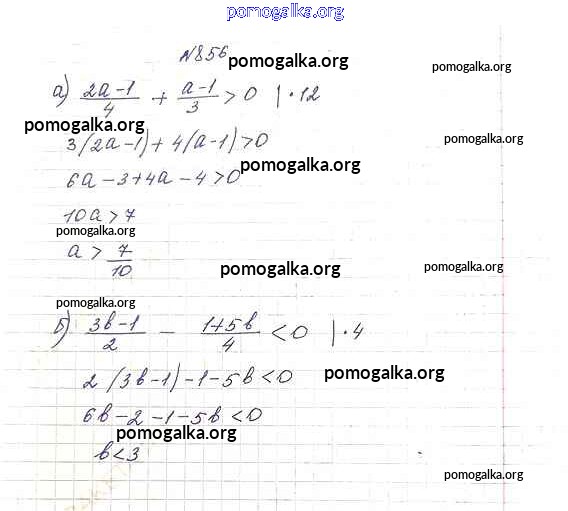 pomogalka.org
№856
pomogalka.org
pomogalka.org
а) (2a-1)/4 + (a-1)/3 > 0 | · 12
pomogalka.org
pomogalka.org
3(2a-1) + 4(a-1) > 0
pomogalka.org
6a - 3 + 4a - 4 > 0
10a > 7
pomogalka.org
a > 7/10
pomogalka.org
pomogalka.org
pomogalka.org
б) (3b-1)/2 - (1+5b)/4 < 0 | · 4
2(3b-1) - 1 - 5b < 0
pomogalka.org
6b - 2 - 1 - 5b < 0
pomogalka.org
b < 3
pomogalka.org